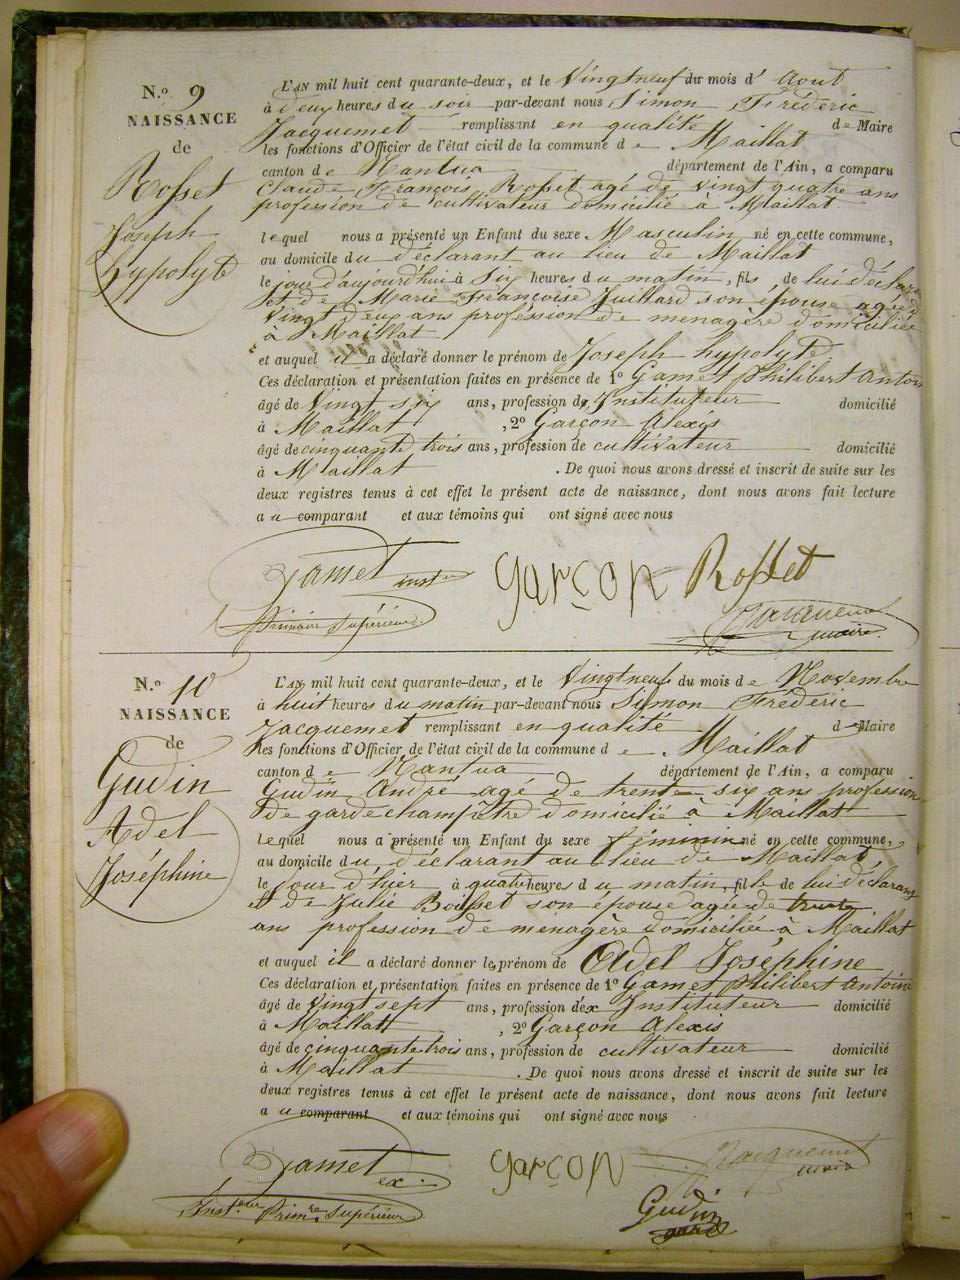 N.o 9
NAISSANCE
de
Rosset
Joseph
hypolyte
L'AN mil huit cent quarante-deux, et le Vingtneuf du mois d' Aout
à deux heures du soir par-devant nous Simon Fréderic
Jacquemet remplissant en qualité de Maire
les fonctions d'Officier de l'état civil de la commune de Maillat
canton de Nantua département de l'Ain, a comparu
Claude François Rosset agé de vingt quatre ans
profession de cultivateur domicilié à Maillat
lequel nous a présenté un Enfant du sexe Masculin né en cette commune,
au domicile du déclarant au lieu de Maillat
le jour d'aujourd'hui à Six heures du matin, fils de lui déclarant
et de Marie Françoise Juillard son épouse agée de
vingt deux ans profession de menagère domiciliée
à Maillat
et auquel il a déclaré donner le prénom de Joseph hypolyte
Ces déclaration et présentation faites en présence de 1o Gamet Philibert Antoine
âgé de Vingt six ans, profession d' Instituteur domicilié
à Maillat , 2o Garçon Alexis
âgé de cinquante trois ans, profession de cultivateur domicilié
à Maillat . De quoi nous avons dressé et inscrit de suite sur les
deux registres tenus à cet effet le présent acte de naissance, dont nous avons fait lecture
au comparant et aux témoins qui ont signé avec nous
Gamet inst
garçon Rosset
Primaire Supérieur
Jacquemet
maire
N.o 10
NAISSANCE
de
Gudin
Adel
Joséphine
L'AN mil huit cent quarante-deux, et le Vingtneuf du mois de Novembre
à huit heures du matin par-devant nous Simon Fréderic
Jacquemet remplissant en qualité de Maire
les fonctions d'Officier de l'état civil de la commune de Maillat
canton de Nantua département de l'Ain, a comparu
Gudin André agé de trente six ans profession
de gardechampêtre domicilié à Maillat
lequel nous a présenté un Enfant du sexe féminin né en cette commune,
au domicile du déclarant au lieu de Maillat,
le Jour d'hier à quatre heures du matin, fille de lui déclarant
et de Julie son épouse agée de trente
ans profession de menagère domiciliée à Maillat
et auquel il a déclaré donner le prénom de Adel Joséphine
Ces déclaration et présentation faites en présence de 1o Gamet Philibert Antoine
âgé de Vingt sept ans, profession d'ex Instituteur domicilié
à Maillat , 2o Garçon Alexis
âgé de cinquante trois ans, profession de cultivateur domicilié
à Maillat . De quoi nous avons dressé et inscrit de suite sur les
deux registres tenus à cet effet le présent acte de naissance, dont nous avons fait lecture
au comparant et aux témoins qui ont signé avec nous
Gamet ex.
garçon
Jacquemet
maire
Inst.eur Prim.re Supérieur
Gudin
garde